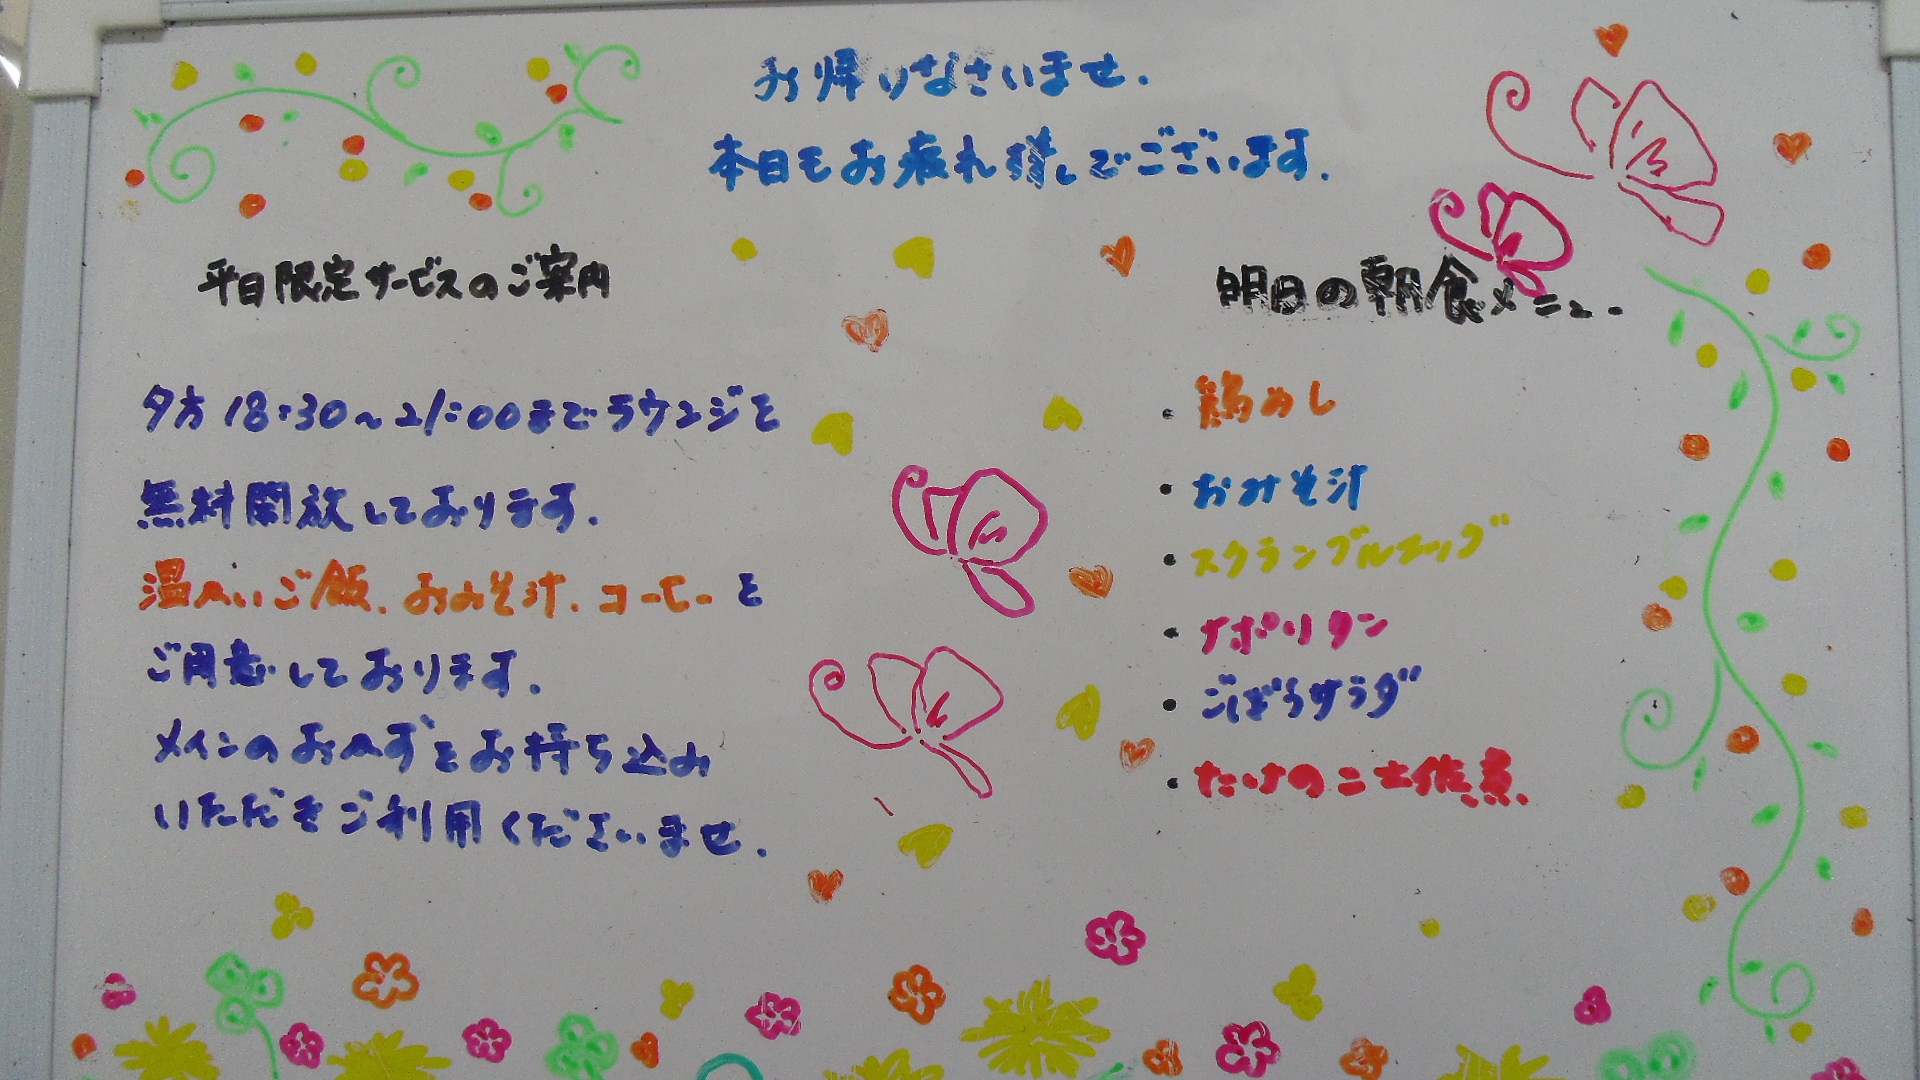 お帰りなさいませ.
本日もお疲れ様でございます.
平日限定サービスのご案内
夕方18:30~21:00までラウンジを
無料開放しております.
温かいご飯、おみそ汁、コーヒーを
ご用意しております.
メインのおかずをお持ち込み
いただきご利用くださいませ.
明日の朝食メニュー
・鶏めし
・おみそ汁
・スクランブルエッグ
・ナポリタン
・ごぼうサラダ
・たけのこ土佐煮